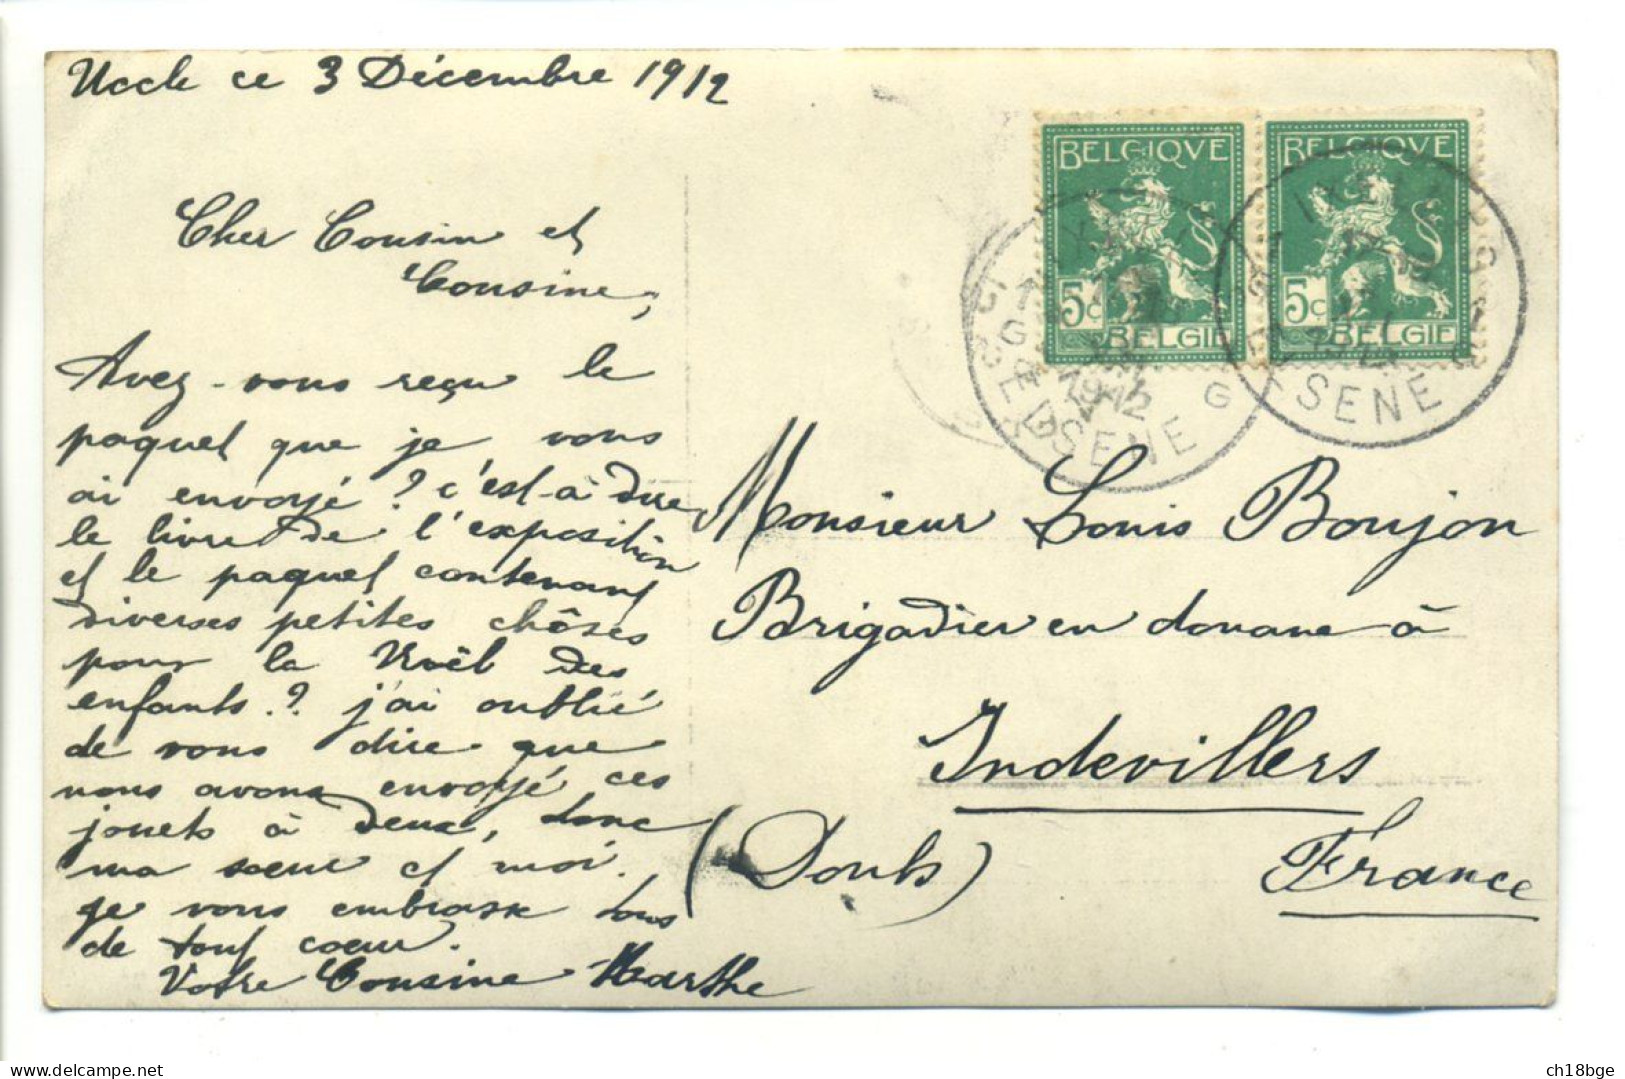 Uccle ce 3 Décembre 1912
Cher Cousin et
Cousine,
Avez-vous reçu le
paquet que je vous
ai envoyé ? c'est-à dire
le livre de l'exposition
et le paquet contenant
diverses petites chôses
pour la Noël des
enfants.? j'ai oublié
de vous dire que
nous avons envoyé ces
jouets à deux, donc
ma sœur et moi.
je vous embrasse tous
de tout cœur.
Votre Cousine Marthe
BELGIQVE
5c
BELGIË
BELGIQVE
5c
BELGIË
1912
SENE
G
SENE
Monsieur Louis Boujon
Brigadier en douane à
Indevillers
(Doubs)
France
delcampe.net
ch18bge